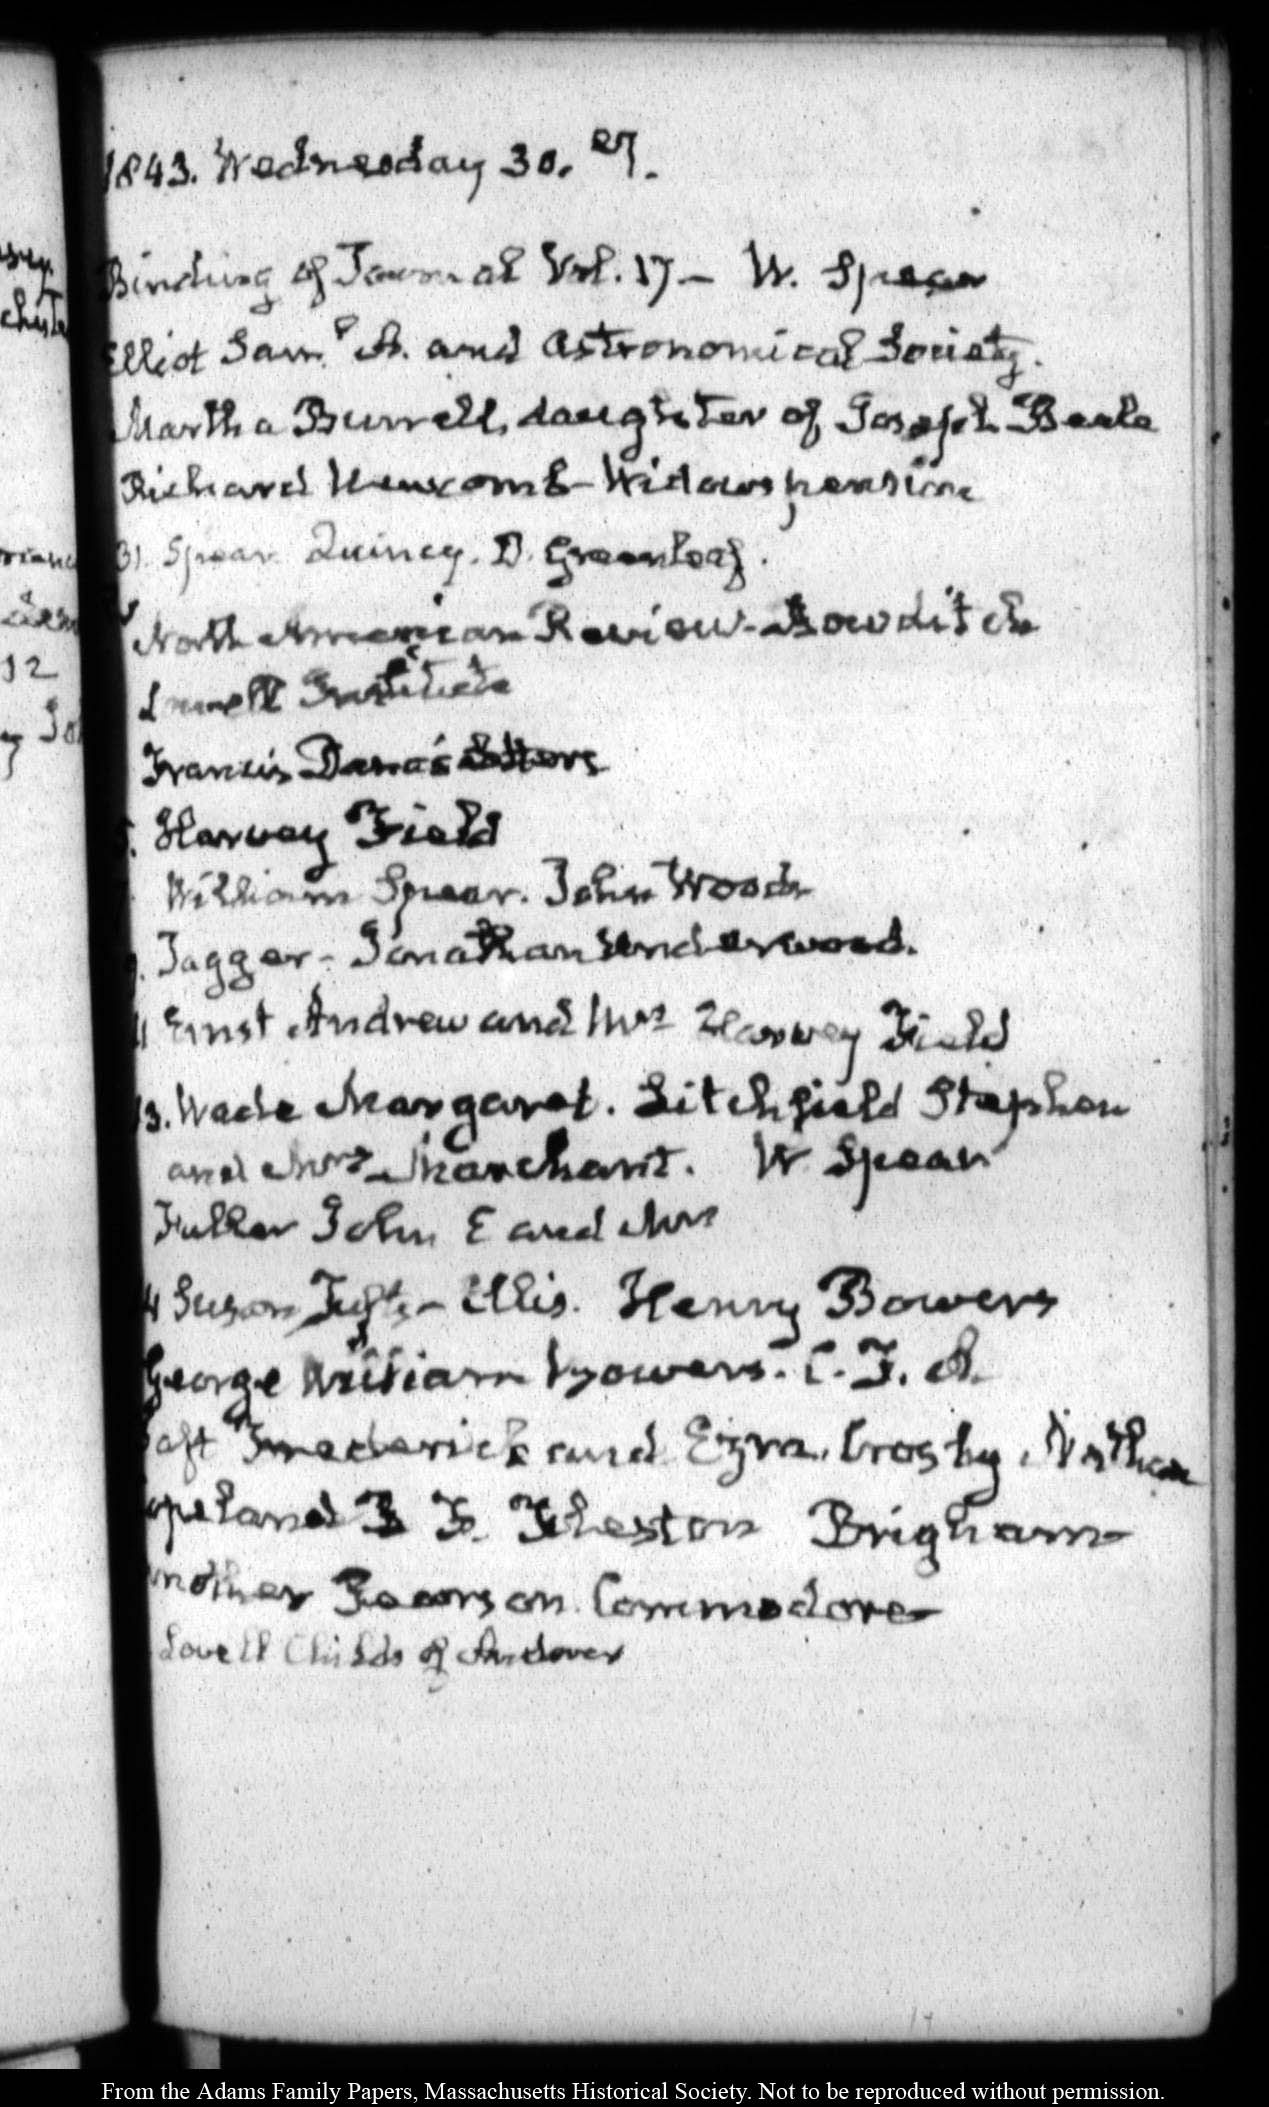 1843. Wednesday 30. 27.
Binding of Journal Vol. 17 - W. Spear
Elliot Sam.l A. and Astronomical Society.
Martha Burrell, daughter of Joseph Beale
Richard Newcomb - Widows pension
31. Spear Quincy. D. Greenleaf.
North American Review - Bowditch
Lowell Institute
Francis Dana's Letters
5. Harvey Field
William Spear. John Woods
9. Jagger - Jonathan Underwood.
11 Ernst Andrew and Mrs Harvey Field
13. Wade Margaret. Litchfield Stephen
and Mrs Marchant. W Spear
Fuller John E and Mrs
14 Susan Tufts - Ellis. Henry Bowers
George William Bowers. C. F. A.
Taft Frederick and Ezra. Crosby Nathan
Copeland F. Brigham
another Pearson Commodore
Lovell Childs of Andover
From the Adams Family Papers, Massachusetts Historical Society. Not to be reproduced without permission.